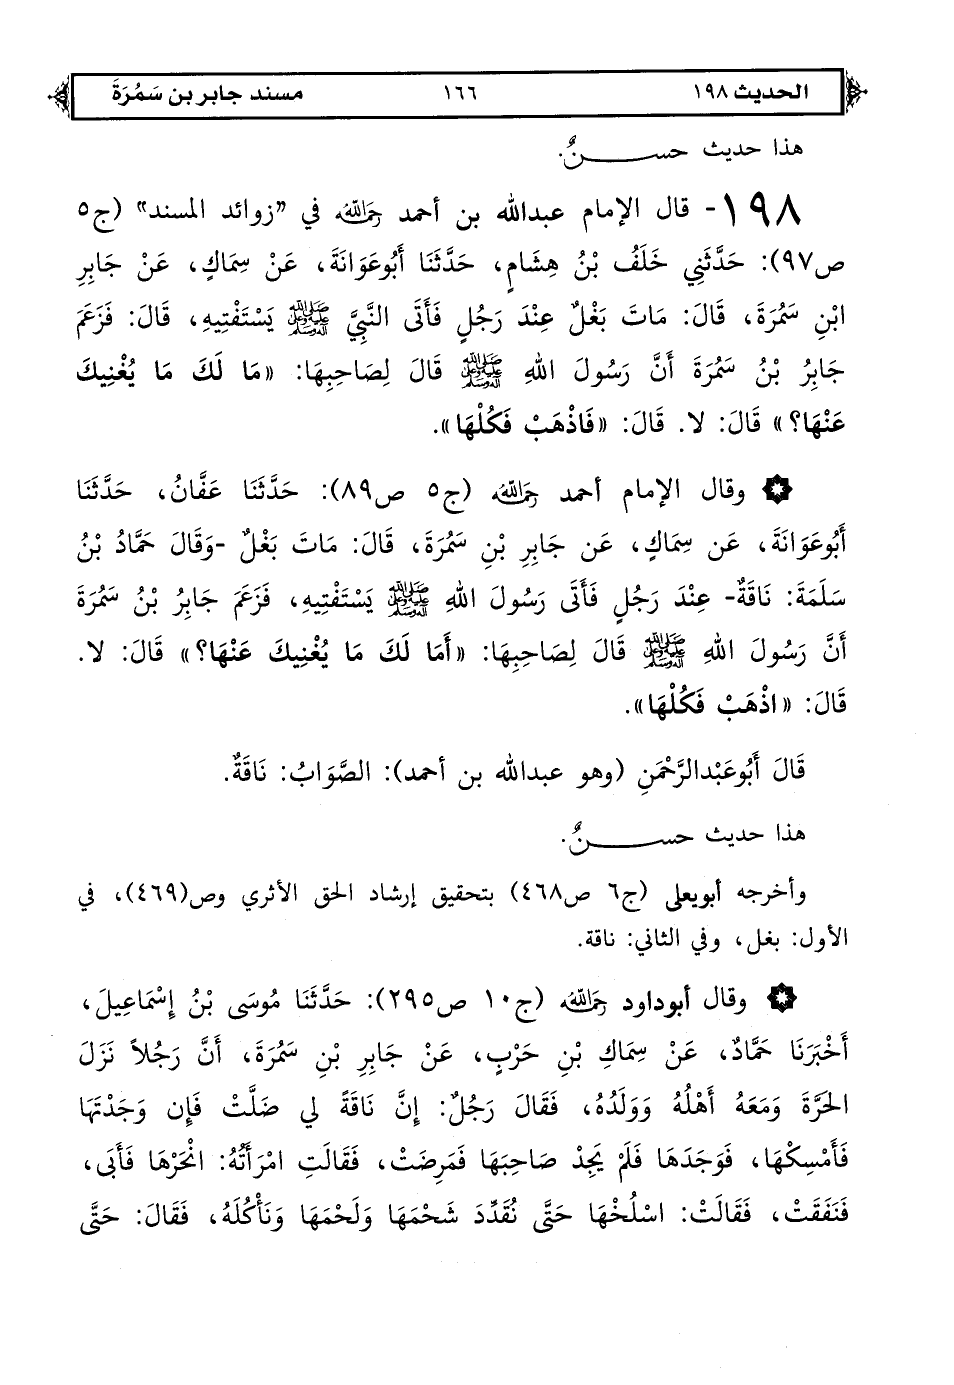 الحديث ١٩٨ ١٦٦ مسند جابر بن سَمُرَةَ
هذا حديث حســـنٌ.
١٩٨- قال الإمام عبدالله بن أحمد رحمه الله في «زوائد المسند» (ج٥
ص٩٧): حَدَّثَنِي خَلَفُ بْنُ هِشَامٍ، حَدَّثَنَا أَبُوعَوَانَةَ، عَنْ سِمَاكٍ، عَنْ جَابِرِ
ابْنِ سَمُرَةَ، قَالَ: مَاتَ بَغْلٌ عِنْدَ رَجُلٍ فَأَتَى النَّبِيَّ ﷺ يَسْتَفْتِيهِ، قَالَ: فَزَعَمَ
جَابِرُ بْنُ سَمُرَةَ أَنَّ رَسُولَ اللهِ ﷺ قَالَ لِصَاحِبِهَا: «مَا لَكَ مَا يُغْنِيكَ
عَنْهَا؟» قَالَ: لا. قَالَ: «فَاذْهَبْ فَكُلْهَا».
وقال الإمام أحمد رحمه الله (ج٥ ص٨٩): حَدَّثَنَا عَفَّانُ، حَدَّثَنَا
أَبُوعَوَانَةَ، عَن سِمَاكٍ، عَن جَابِرِ بْنِ سَمُرَةَ، قَالَ: مَاتَ بَغْلٌ -وَقَالَ حَمَّادُ بْنُ
سَلَمَةَ: نَاقَةٌ- عِنْدَ رَجُلٍ فَأَتَى رَسُولَ اللهِ ﷺ يَسْتَفْتِيهِ، فَزَعَمَ جَابِرُ بْنُ سَمُرَةَ
أَنَّ رَسُولَ اللهِ ﷺ قَالَ لِصَاحِبِهَا: «أَمَا لَكَ مَا يُغْنِيكَ عَنْهَا؟» قَالَ: لا.
قَالَ: «اذْهَبْ فَكُلْهَا».
قَالَ أَبُوعَبْدالرَّحْمَنِ (وهو عبدالله بن أحمد): الصَّوَابُ: نَاقَةٌ.
هذا حديث حســـنٌ.
وأخرجه أبويعلى (ج٦ ص٤٦٨) بتحقيق إرشاد الحق الأثري وص(٤٦٩)، في
الأول: بغل، وفي الثاني: ناقة.
وقال أبوداود رحمه الله (ج١٠ ص٢٩٥): حَدَّثَنَا مُوسَى بْنُ إِسْمَاعِيلَ،
أَخْبَرَنَا حَمَّادٌ، عَنْ سِمَاكِ بْنِ حَرْبٍ، عَنْ جَابِرِ بْنِ سَمُرَةَ، أَنَّ رَجُلاً نَزَلَ
الحَرَّةَ وَمَعَهُ أَهْلُهُ وَوَلَدُهُ، فَقَالَ رَجُلٌ: إِنَّ نَاقَةً لِي ضَلَّتْ فَإِن وَجَدْتَهَا
فَأَمْسِكْهَا، فَوَجَدَهَا فَلَمْ يَجِدْ صَاحِبَهَا فَمَرِضَتْ، فَقَالَتِ امْرَأَتُهُ: انْحَرْهَا فَأَبَى،
فَنَفَقَتْ، فَقَالَتْ: اسْلُخْهَا حَتَّى نُقَدِّدَ شَحْمَهَا وَلَحْمَهَا وَنَأْكُلَهُ، فَقَالَ: حَتَّى